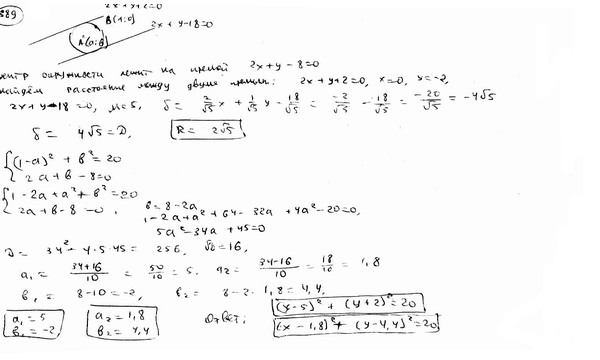 389
2x+y+2=0
B(1;0)
2x+y-18=0
A(a;b)
центр окружности лежит на прямой 2x+y-8=0
найдём расстояние между двумя прямыми: 2x+y+2=0, x=0, y=-2,
2x+y-18=0, M=5, δ = 2/√5 x + 1/√5 y - 18/√5 = -2/√5 - 18/√5 = -20/√5 = -4√5
δ = 4√5 = D, R = 2√5
{(1-a)² + b² = 20
2a+b-8=0
{1-2a+a²+b²=20
2a+b-8=0, b=8-2a
1-2a+a²+64-32a+4a²-20=0,
5a²-34a+45=0
D = 34²-4·5·45 = 256, √D=16,
a₁ = (34+16)/10 = 50/10 = 5. a₂ = (34-16)/10 = 18/10 = 1,8
b₁ = 8-10=-2, b₂ = 8-2·1,8=4,4,
a₁=5
b₁=-2
a₂=1,8
b₂=4,4
Ответ:
(x-5)²+(y+2)²=20
(x-1,8)²+(y-4,4)²=20